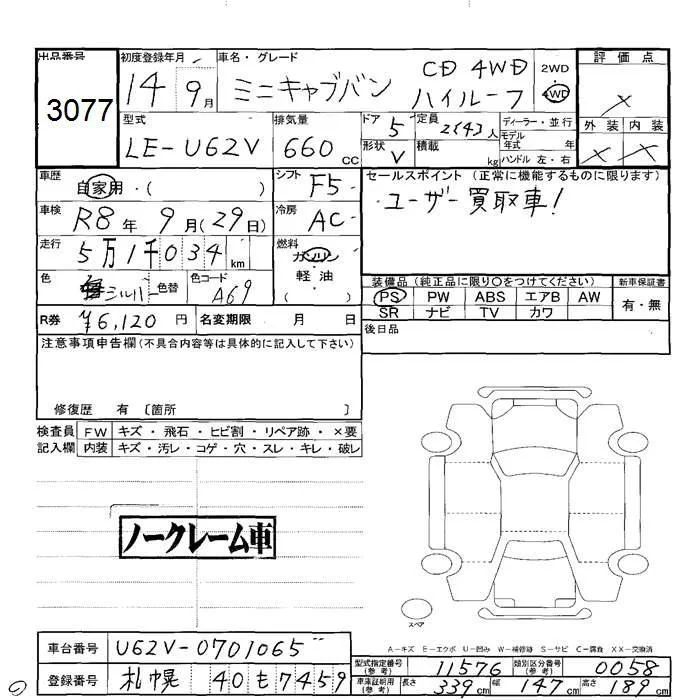 出品番号 初度登録年月 車名・グレード 評価点
3077 14 9月 ミニキャブバン CD 4WD ハイルーフ 2WD 4WD ×
型式 排気量 ドア 定員 ディーラー・並行 外装 内装
LE-U62V 660cc 5 2(4)人 モデル年式 年 × ×
形状 V 積載 kg ハンドル 左・右
車歴 自家用・( ) シフト F5 セールスポイント (正常に機能するものに限ります)
・ユーザー買取車!
車検 R8年 9月(29日) 冷房 AC
走行 5万1千034km 燃料 ガソリン
軽油
( )
色 シルバー 色替 色コード A69
装備品(純正品に限り○をつけてください) 新車保証書
PS PW ABS エアB AW 有・無
SR ナビ TV カワ
R券 ¥6,120円 名変期限 月 日 後日品
注意事項申告欄(不具合内容等は具体的に記入して下さい)
修復歴 有 〔箇所 〕
検査員 FW キズ・飛石・ヒビ割・リペア跡・×要
記入欄 内装 キズ・汚レ・コゲ・穴・スレ・キレ・破レ
ノークレーム車
スペア
A-キズ E-エクボ U-凹み W-補修跡 S-サビ C-腐食 XX-交換済
車台番号 U62V-0701065
型式指定番号(参考) 11576 類別区分番号(参考) 0058
登録番号 札幌 40 も 7459
車庫証明用(参考) 長さ 339cm 幅 147cm 高さ 189cm